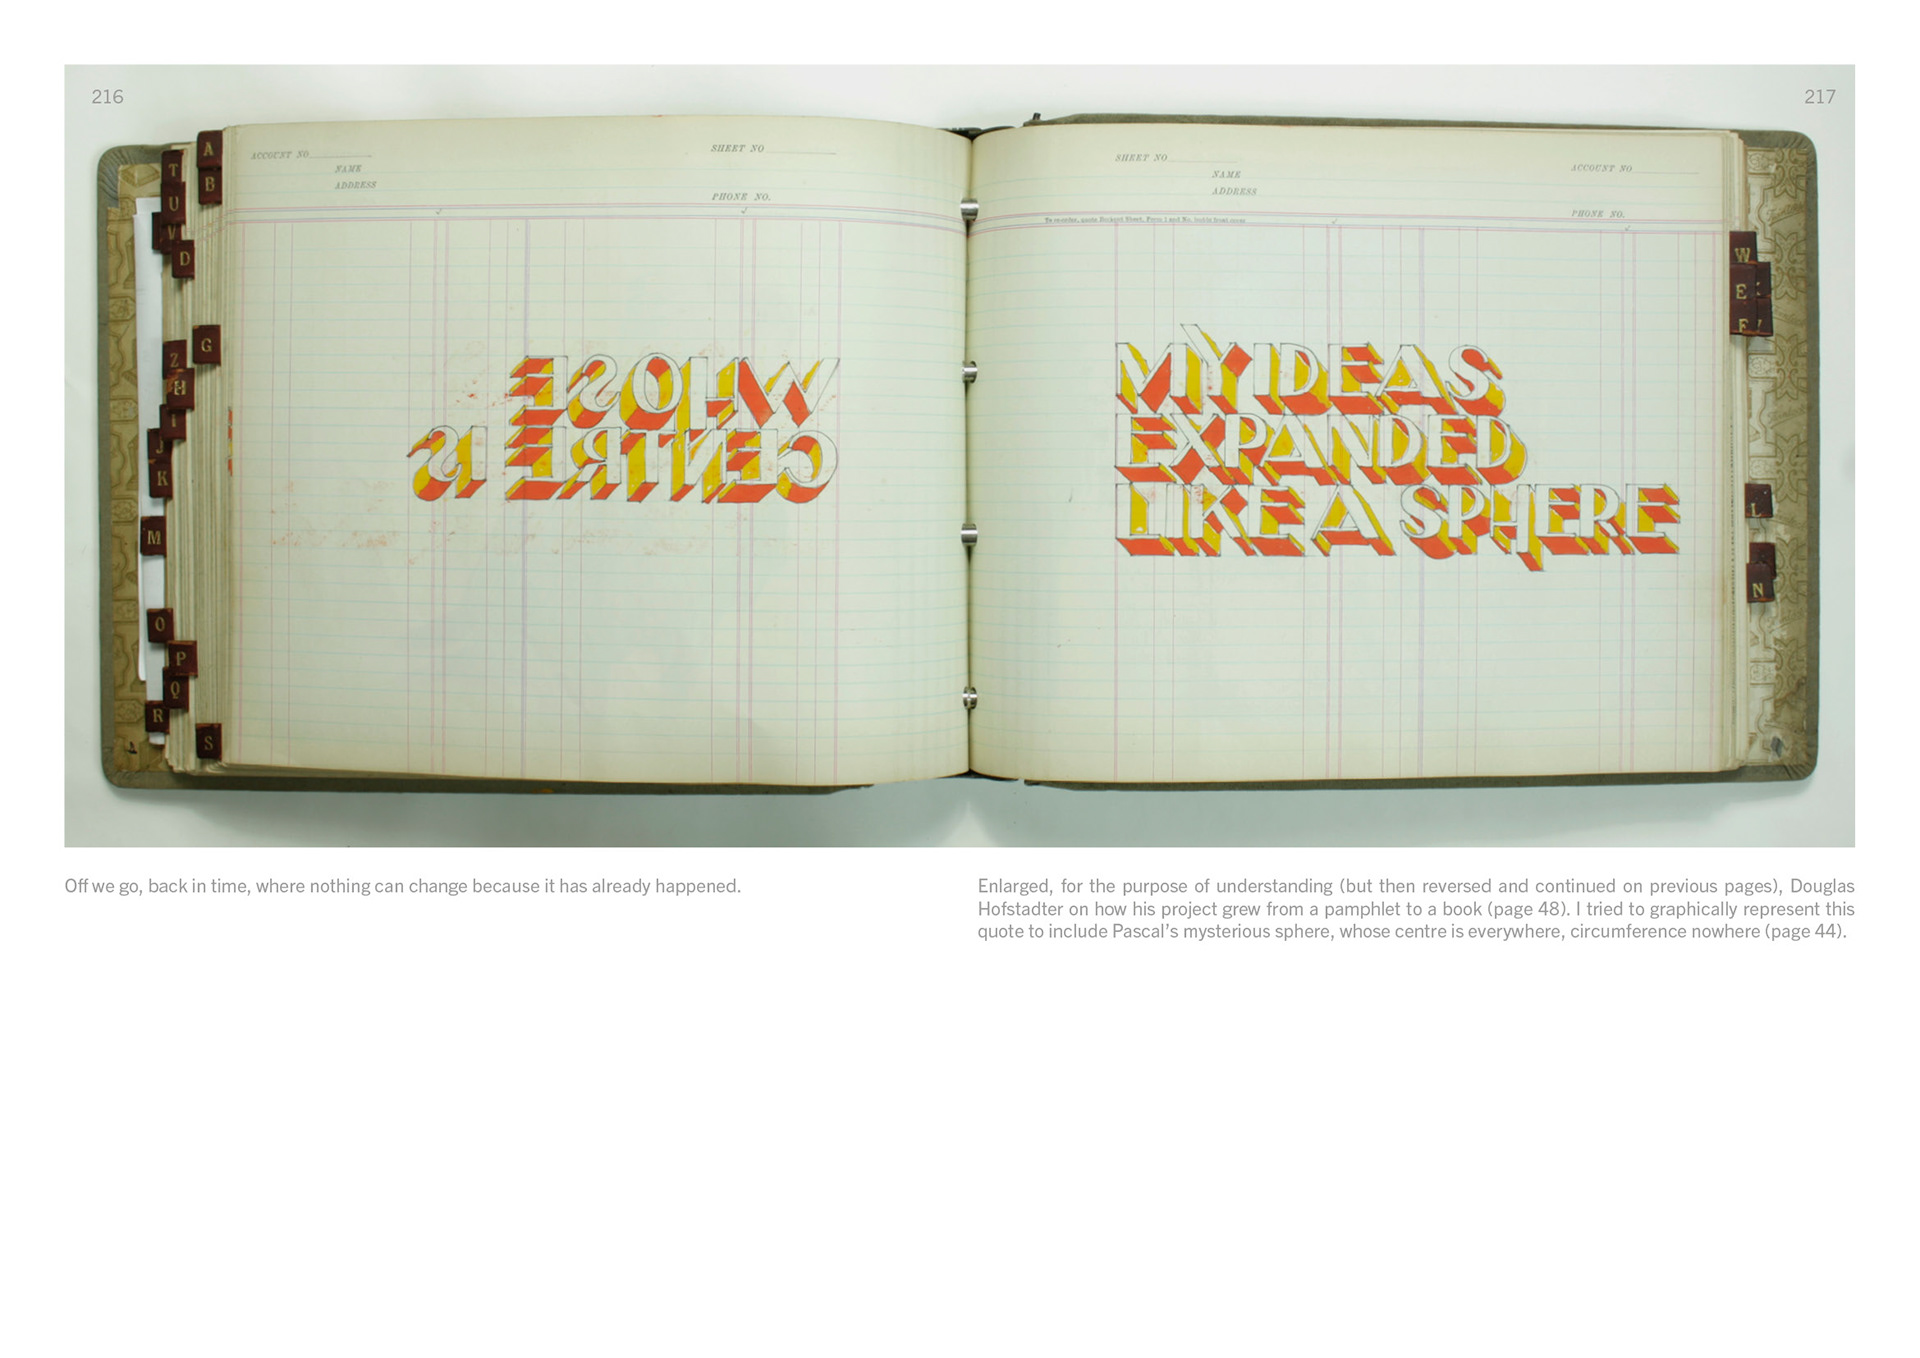 216
217
A
B
T
U
V
D
G
Z
H
I
J
K
M
O
P
Q
R
S
ACCOUNT NO
SHEET NO
NAME
ADDRESS
PHONE NO.
WHOSE
CENTRE IS
SHEET NO
ACCOUNT NO
NAME
ADDRESS
PHONE NO.
MY IDEAS
EXPANDED
LIKE A SPHERE
W
E
F
L
N
Off we go, back in time, where nothing can change because it has already happened.
Enlarged, for the purpose of understanding (but then reversed and continued on previous pages), Douglas
Hofstadter on how his project grew from a pamphlet to a book (page 48). I tried to graphically represent this
quote to include Pascal's mysterious sphere, whose centre is everywhere, circumference nowhere (page 44).